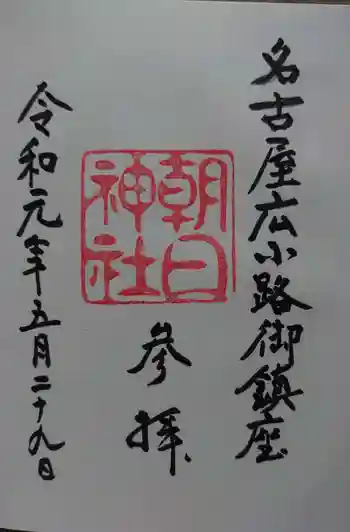 名古屋広小路御鎮座
朝日神社
参拝
令和元年五月二十九日